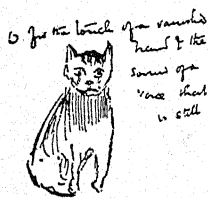 O for the touch of a vanished
hand & the
sound of a
voice that
is still